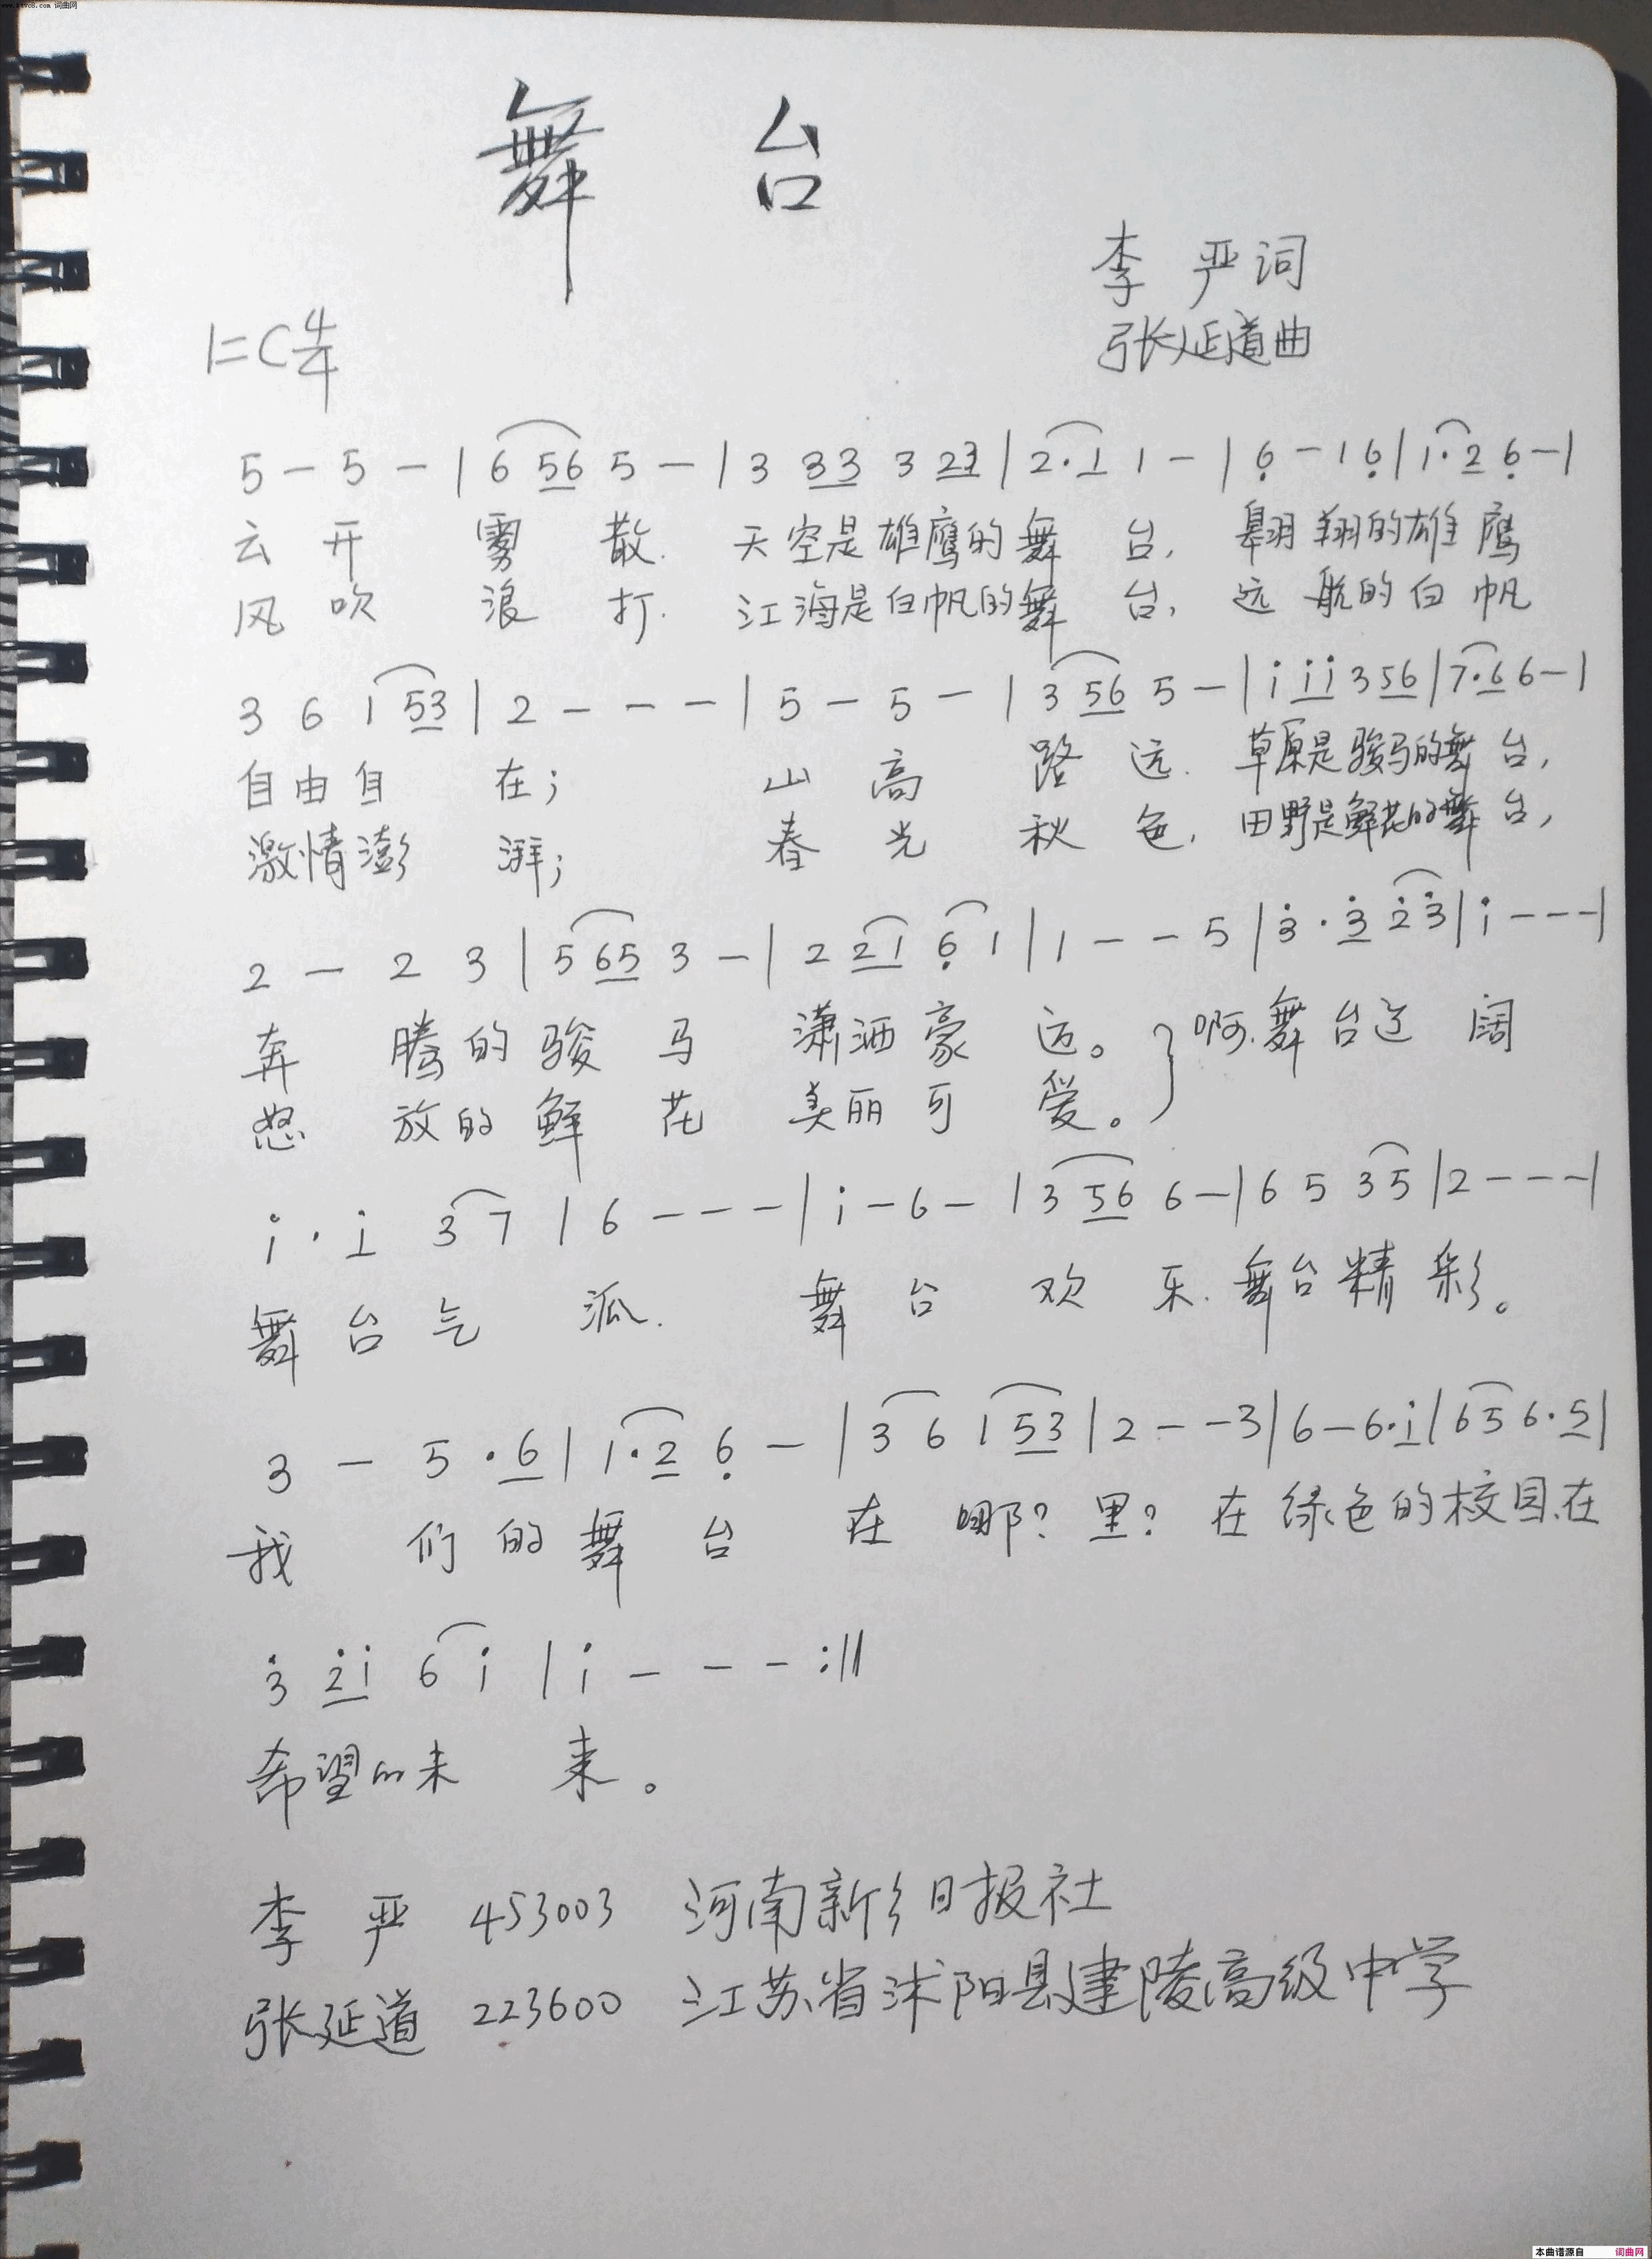 www.ktvc8.com 词曲网
舞 台
李 严词
1=C 4/4
张延道曲
5 - 5 - | 6 56 5 - | 3 33 3 23 | 2·1 1 - | 6̣ - 1 6̣ | 1·2 6̣ - |
云 开 雾 散. 天空是雄鹰的舞 台, 翱翔的雄鹰
风 吹 浪 打. 江海是白帆的舞 台, 远航的白帆
3 6 1 53 | 2 - - - | 5 - 5 - | 3 56 5 - | i ii 3 56 | 7·6 6 - |
自由自 在; 山 高 路 远. 草原是骏马的舞台,
激情澎 湃; 春 光 秋 色, 田野是鲜花的舞台,
2 - 2 3 | 5 65 3 - | 2 21 6̣ 1 | 1 - - 5 | 3̇ · 3̇ 2̇ 3̇ | i - - - |
奔 腾的骏 马 潇洒豪 迈。} 啊.舞台辽 阔
怒 放的鲜 花 美丽可 爱。
i · i 3 7 | 6 - - - | i - 6 - | 3 56 6 - | 6 5 3 5 | 2 - - - |
舞台气 派. 舞 台 欢 乐. 舞台精彩。
3 - 5 · 6 | 1·2 6̣ - | 3 6 1 53 | 2 - - 3 | 6 - 6·i | 6 5 6·5 |
我 们的舞 台 在 哪? 里? 在绿色的校园.在
3̇ 2̇i 6 i | i - - - :||
希望的未 来。
李 严 453003 河南新乡日报社
张延道 223600 江苏省沭阳县建陵高级中学
本曲谱源自 词曲网